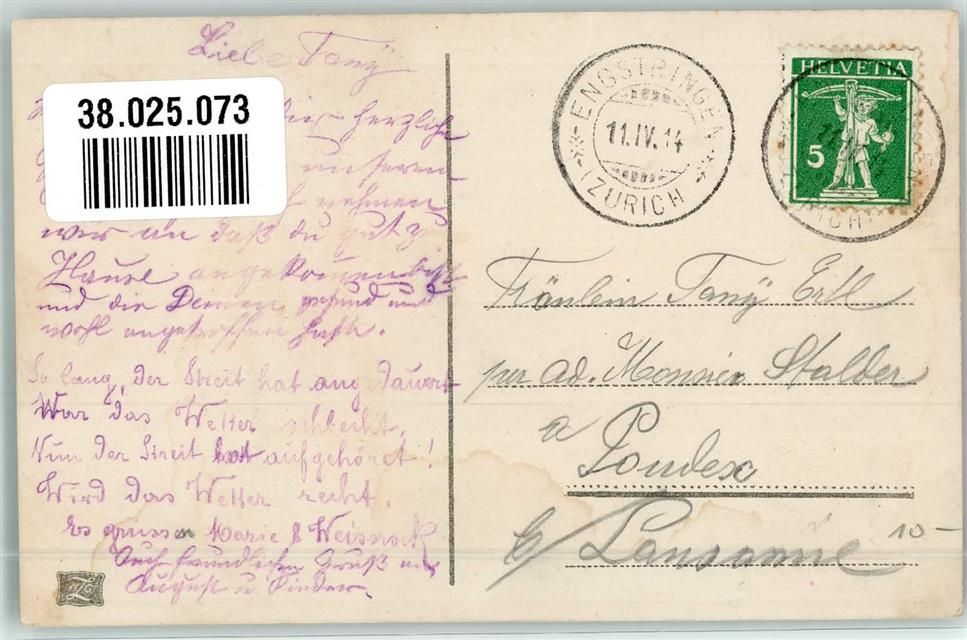 Liebe Tany
38.025.073
herzliche
unseren
nehmen
wir an daß du gut zu
Hause angekommen bist
und die Deinen gesund und
wohl angetroffen hast.
So lang, der Streit hat angedauert
War das Wetter schlecht,
Nun der Streit hat aufgehöret!
Wird das Wetter recht.
Es grüssen Marie &
Auch freundlichen Gruß von
August u. Kinder.
ENGSTRINGEN
11.IV.14
(ZÜRICH)
HELVETIA
5
Fräulein Tany Ertl
per ad. Monsieur Stalder
a
Poudex
b/ Lausanne
10-